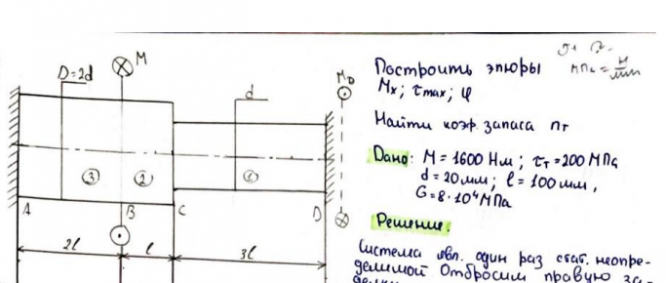 D=2d
M
d
M_D
③
②
①
A
B
C
D
2l
l
3l
МПа = Н/мм
Построить эпюры
Mx; τmax; φ
Найти коэф. запаса nт
Дано: M = 1600 Нм; τт = 200 МПа
d = 20 мм; l = 100 мм,
G = 8·10⁴ МПа
Решение.
Система явл. один раз стат. неопре-
делимой Отбросим правую за-